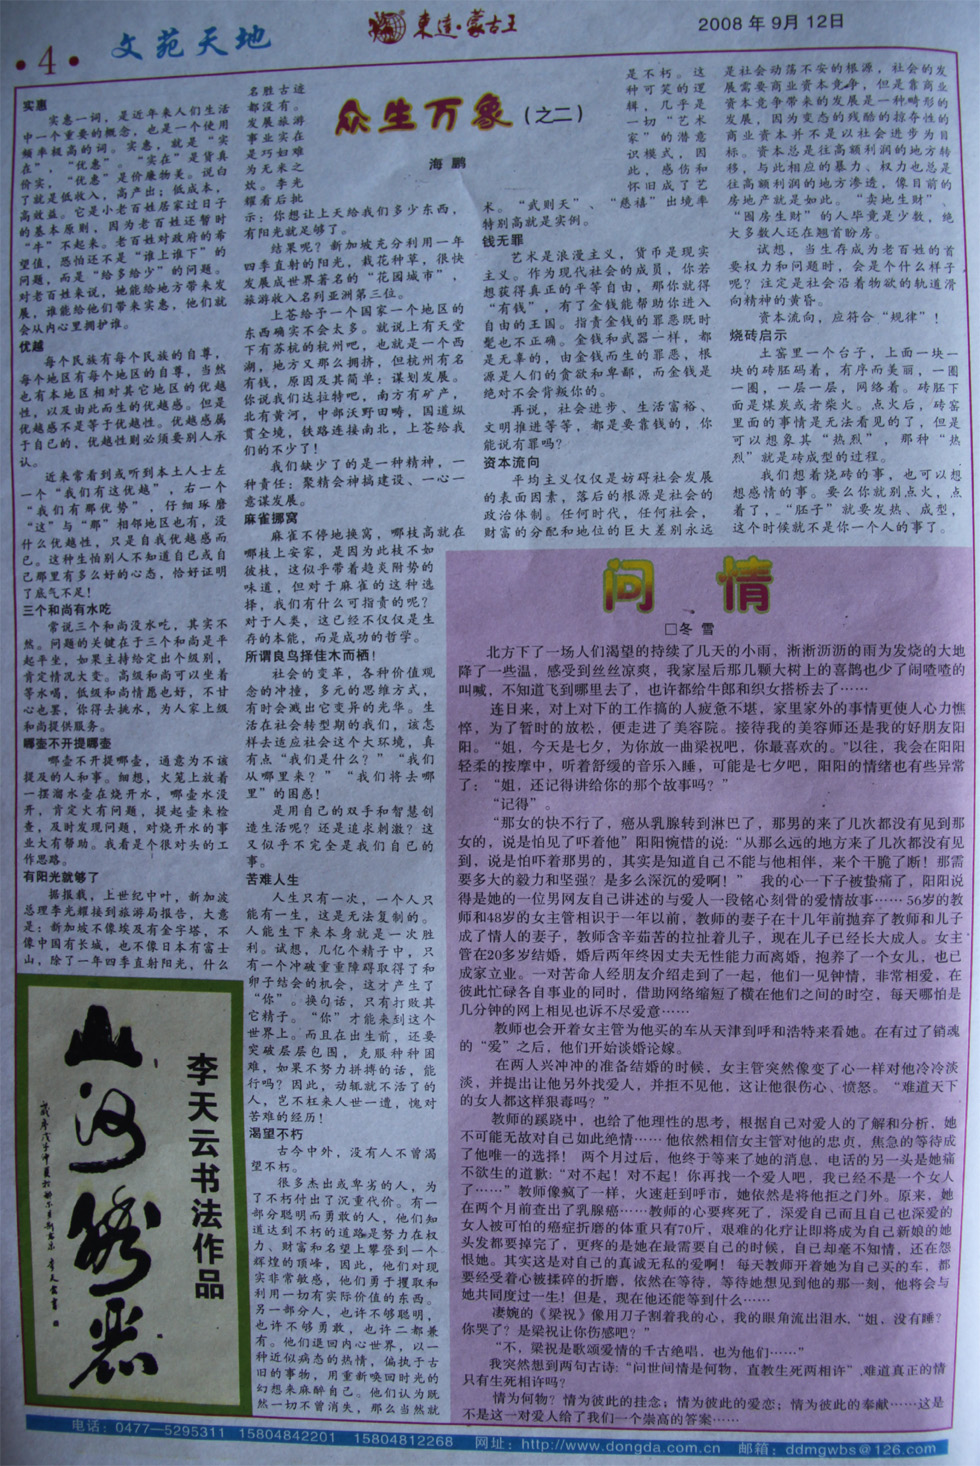 ·4·
文苑天地
東達·蒙古王
2008年9月12日
众生万象(之二)
海鹏
实惠
实惠一词，是近年来人们生活
中一个重要的概念，也是一个使用
频率极高的词。实惠，就是“实
在”，“优惠”。“实在”是货真
价实，“优惠”是价廉物美。说白
了就是低收入，高产出；低成本，
高效益。它是小老百姓居家过日子
的基本原则，因为老百姓还暂时
“牛”不起来。老百姓对政府的希
望值，恐怕还不是“谁上谁下”的
问题，而是“给多给少”的问题。
对老百姓来说，她能给地方带来发
展，谁能给他们带来实惠，他们就
会从内心里拥护谁。
优越
每个民族有每个民族的自尊，
每个地区有每个地区的自尊，当然
也有本地区相对其它地区的优越
性，以及由此而生的优越感。但是
优越感不是等于优越性。优越感属
于自己的，优越性则必须要别人承
认。
近来常看到或听到本土人士左
一个“我们有这优越”，右一个
“我们有那优势”，仔细琢磨
“这”与“那”相邻地区也有，没
什么优越性，只是自我优越感而
已。这种生怕别人不知道自己或自
己那里有多么好的心态，恰好证明
了底气不足！
三个和尚有水吃
常说三个和尚没水吃，其实不
然。问题的关键在于三个和尚是平
起平坐，如果主持给定出个级别，
肯定情况大变。高级和尚可以坐着
等水喝，低级和尚情愿也好，不甘
心也罢，你得去挑水，为人家上级
和尚提供服务。
哪壶不开提哪壶
哪壶不开提哪壶，通意为不该
提及的人和事。细想，火笼上放着
一摆溜水壶在烧开水，哪壶水没
开，肯定火有问题，提起壶来检
查，及时发现问题，对烧开水的事
业大有帮助。我看是个很对头的工
作思路。
有阳光就够了
据报载，上世纪中叶，新加波
总理李光耀接到旅游局报告，大意
是：新加坡不像埃及有金字塔，不
像中国有长城，也不像日本有富士
山，除了一年四季直射阳光，什么
名胜古迹
都没有。
发展旅游
事业实在
是巧如难
为无米之
炊。李光
耀看后批
示：你想让上天给我们多少东西，
有阳光就足够了。
结果呢？新加坡充分利用一年
四季直射的阳光，栽花种草，很快
发展成世界著名的“花园城市”，
旅游收入名列亚洲第三位。
上苍给于一个国家一个地区的
东西确实不会太多。就说上有天堂
下有苏杭的杭州吧，也就是一个西
湖，地方又那么拥挤，但杭州有名
有钱，原因及其简单：谋划发展。
你说我们达拉特吧，南方有矿产，
北有黄河，中部沃野田畴，国道纵
贯全境，铁路连接南北，上苍给我
们的不少了！
我们缺少了的是一种精神，一
种责任：聚精会神搞建设、一心一
意谋发展。
麻雀挪窝
麻雀不停地换窝，哪枝高就在
哪枝上安家，是因为此枝不如
彼枝，这似乎带着趋炎附势的
味道，但对于麻雀的这种选
择，我们有什么可指责的呢？
对于人类，这已经不仅仅是生
存的本能，而是成功的哲学。
所谓良鸟择佳木而栖！
社会的变革，各种价值观
念的冲撞，多元的思维方式，
有时会溅出它变异的光华。生
活在社会转型期的我们，该怎
样去适应社会这个大环境，真
有点“我们是什么？”“我们
从哪里来？”“我们将去哪
里”的困惑！
是用自己的双手和智慧创
造生活呢？还是追求刺激？这
又似乎不完全是我们自己的
事。
苦难人生
人生只有一次，一个人只
能有一生，这是无法复制的。
人能生下来本身就是一次胜
利。试想，几亿个精子中，只
有一个冲破重重障碍取得了和
卵子结合的机会，这才产生了
“你”。换句话，只有打败其
它精子。“你”才能来到这个
世界上。而且在出生前，还要
突破层层包围，克服种种困
难，如果不努力拼搏的话，能
行吗？因此，动辄就不活了的
人，岂不枉来人世一遭，愧对
苦难的经历！
渴望不朽
古今中外，没有人不曾渴
望不朽。
很多杰出或卑劣的人，为
了不朽付出了沉重代价。有一
部分聪明而勇敢的人，他们知
道达到不朽的道路是努力在权
力、财富和名望上攀登到一个
辉煌的顶峰，因此，他们对现
实非常敏感，他们勇于攫取和
利用一切有实际价值的东西。
另一部分人，也许不够聪明，
也许不够勇敢，也许二都兼
有。他们退回内心世界，以一
种近似病态的热情，偏执于古
旧的事物，用重新唤回时光的
幻想来麻醉自己。他们认为既
然一切不曾消失，那么当然就
是不朽。这
种可笑的逻
辑，几乎是
一切“艺术
家”的潜意
识模式，因
此，感伤和
怀旧成了艺
术。“武则天”、“慈禧”出境率
特别高就是实例。
钱无罪
艺术是浪漫主义，货币是现实
主义。作为现代社会的成员，你若
想获得真正的平等自由，那你就得
“有钱”，有了金钱能帮助你进入
自由的王国。指责金钱的罪恶既时
髦也不正确。金钱和武器一样，都
是无辜的，由金钱而生的罪恶，根
源是人们的贪欲和卑鄙，而金钱是
绝对不会背叛你的。
再说，社会进步、生活富裕、
文明推进等等，都是要靠钱的，你
能说有罪吗？
资本流向
平均主义仅仅是妨碍社会发展
的表面因素，落后的根源是社会的
政治体制。任何时代，任何社会，
财富的分配和地位的巨大差别永远
是社会动荡不安的根源，社会的发
展需要商业资本竞争，但是靠商业
资本竞争带来的发展是一种畸形的
发展，因为变态的残酷的掠夺性的
商业资本并不是以社会进步为目
标。资本总是往高额利润的地方转
移，与此相应的暴力、权力也总是
往高额利润的地方渗透，像目前的
房地产就是如此。“卖地生财”、
“囤房生财”的人毕竟是少数，绝
大多数人还在翘首盼房。
试想，当生存成为老百姓的首
要权力和问题时，会是个什么样子
呢？注定是社会沿着物欲的轨道滑
向精神的黄昏。
资本流向，应符合“规律”！
烧砖启示
土窑里一个台子，上面一块一
块的砖胚码着，有序而美丽，一圈
一圈，一层一层，网络着。砖胚下
面是煤炭或者柴火。点火后，砖窑
里面的事情是无法看见的了，但是
可以想象其“热烈”，那种“热
烈”就是砖成型的过程。
我们想着烧砖的事，也可以想
想感情的事。要么你就别点火，点
着了，“胚子”就要发热、成型，
这个时候就不是你一个人的事了。
问情
□冬雪
北方下了一场人们渴望的持续了几天的小雨，淅淅沥沥的雨为发烧的大地
降了一些温，感受到丝丝凉爽，我家屋后那几颗大树上的喜鹊也少了闹喳喳的
叫喊，不知道飞到哪里去了，也许都给牛郎和织女搭桥去了……
连日来，对上对下的工作搞的人疲惫不堪，家里家外的事情更使人心力憔
悴，为了暂时的放松，便走进了美容院。接待我的美容师还是我的好朋友阳
阳。“姐，今天是七夕，为你放一曲梁祝吧，你最喜欢的。”以往，我会在阳阳
轻柔的按摩中，听着舒缓的音乐入睡，可能是七夕吧，阳阳的情绪也有些异常
了：“姐，还记得讲给你的那个故事吗？”
“记得”。
“那女的快不行了，癌从乳腺转到淋巴了，那男的来了几次都没有见到那
女的，说是怕见了吓着他”阳阳惋惜的说：“从那么远的地方来了几次都没有见
到，说是怕吓着那男的，其实是知道自己不能与他相伴，来个干脆了断！那需
要多大的毅力和坚强？是多么深沉的爱啊！” 我的心一下子被蛰痛了，阳阳说
得是她的一位男网友自己讲述的与爱人一段铭心刻骨的爱情故事……56岁的教
师和48岁的女主管相识于一年以前，教师的妻子在十几年前抛弃了教师和儿子
成了情人的妻子，教师含辛茹苦的拉扯着儿子，现在儿子已经长大成人。女主
管在20多岁结婚，婚后两年终因丈夫无性能力而离婚，抱养了一个女儿，也已
成家立业。一对苦命人经朋友介绍走到了一起，他们一见钟情，非常相爱，在
彼此忙碌各自事业的同时，借助网络缩短了横在他们之间的时空，每天哪怕是
几分钟的网上相见也诉不尽爱意……
教师也会开着女主管为他买的车从天津到呼和浩特来看她。在有过了销魂
的“爱”之后，他们开始谈婚论嫁。
在两人兴冲冲的准备结婚的时候，女主管突然像变了心一样对他冷冷淡
淡，并提出让他另外找爱人，并拒不见他，这让他很伤心、愤怒。“难道天下
的女人都这样狠毒吗？”
教师的蹊跷中，也给了他理性的思考，根据自己对爱人的了解和分析，她
不可能无故对自己如此绝情……他依然相信女主管对他的忠贞，焦急的等待成
了他唯一的选择！ 两个月过后，他终于等来了她的消息，电话的另一头是她痛
不欲生的道歉：“对不起！对不起！你再找一个爱人吧，我已经不是一个女人
了……”教师像疯了一样，火速赶到呼市，她依然是将他拒之门外。原来，她
在两个月前查出了乳腺癌……教师的心要疼死了，深爱自己而且自己也深爱的
女人被可怕的癌症折磨的体重只有70斤，艰难的化疗让即将成为自己新娘的她
头发都要掉完了，更疼的是她在最需要自己的时候，自己却毫不知情，还在怨
恨她。其实这是对自己的真诚无私的爱啊！每天教师开着她为自己买的车，都
要经受着心被揉碎的折磨，依然在等待，等待她想见到他的那一刻，他将会与
她共同度过一生！但是，现在他还能等到什么……
凄婉的《梁祝》像用刀子割着我的心，我的眼角流出泪水，“姐，没有睡？
你哭了？是梁祝让你伤感吧？”
“不，梁祝是歌颂爱情的千古绝唱，也为他们……”
我突然想到两句古诗：“问世间情是何物，直教生死两相许”，难道真正的情
只有生死相许吗？
情为何物？情为彼此的挂念；情为彼此的爱恋；情为彼此的奉献……这是
不是这一对爱人给了我们一个崇高的答案……
李天云书法作品
山河
电话：0477—5295311 15804842201 15804812268 网址：http://www.dongda.com.cn 邮箱：ddmgwbs@126.com